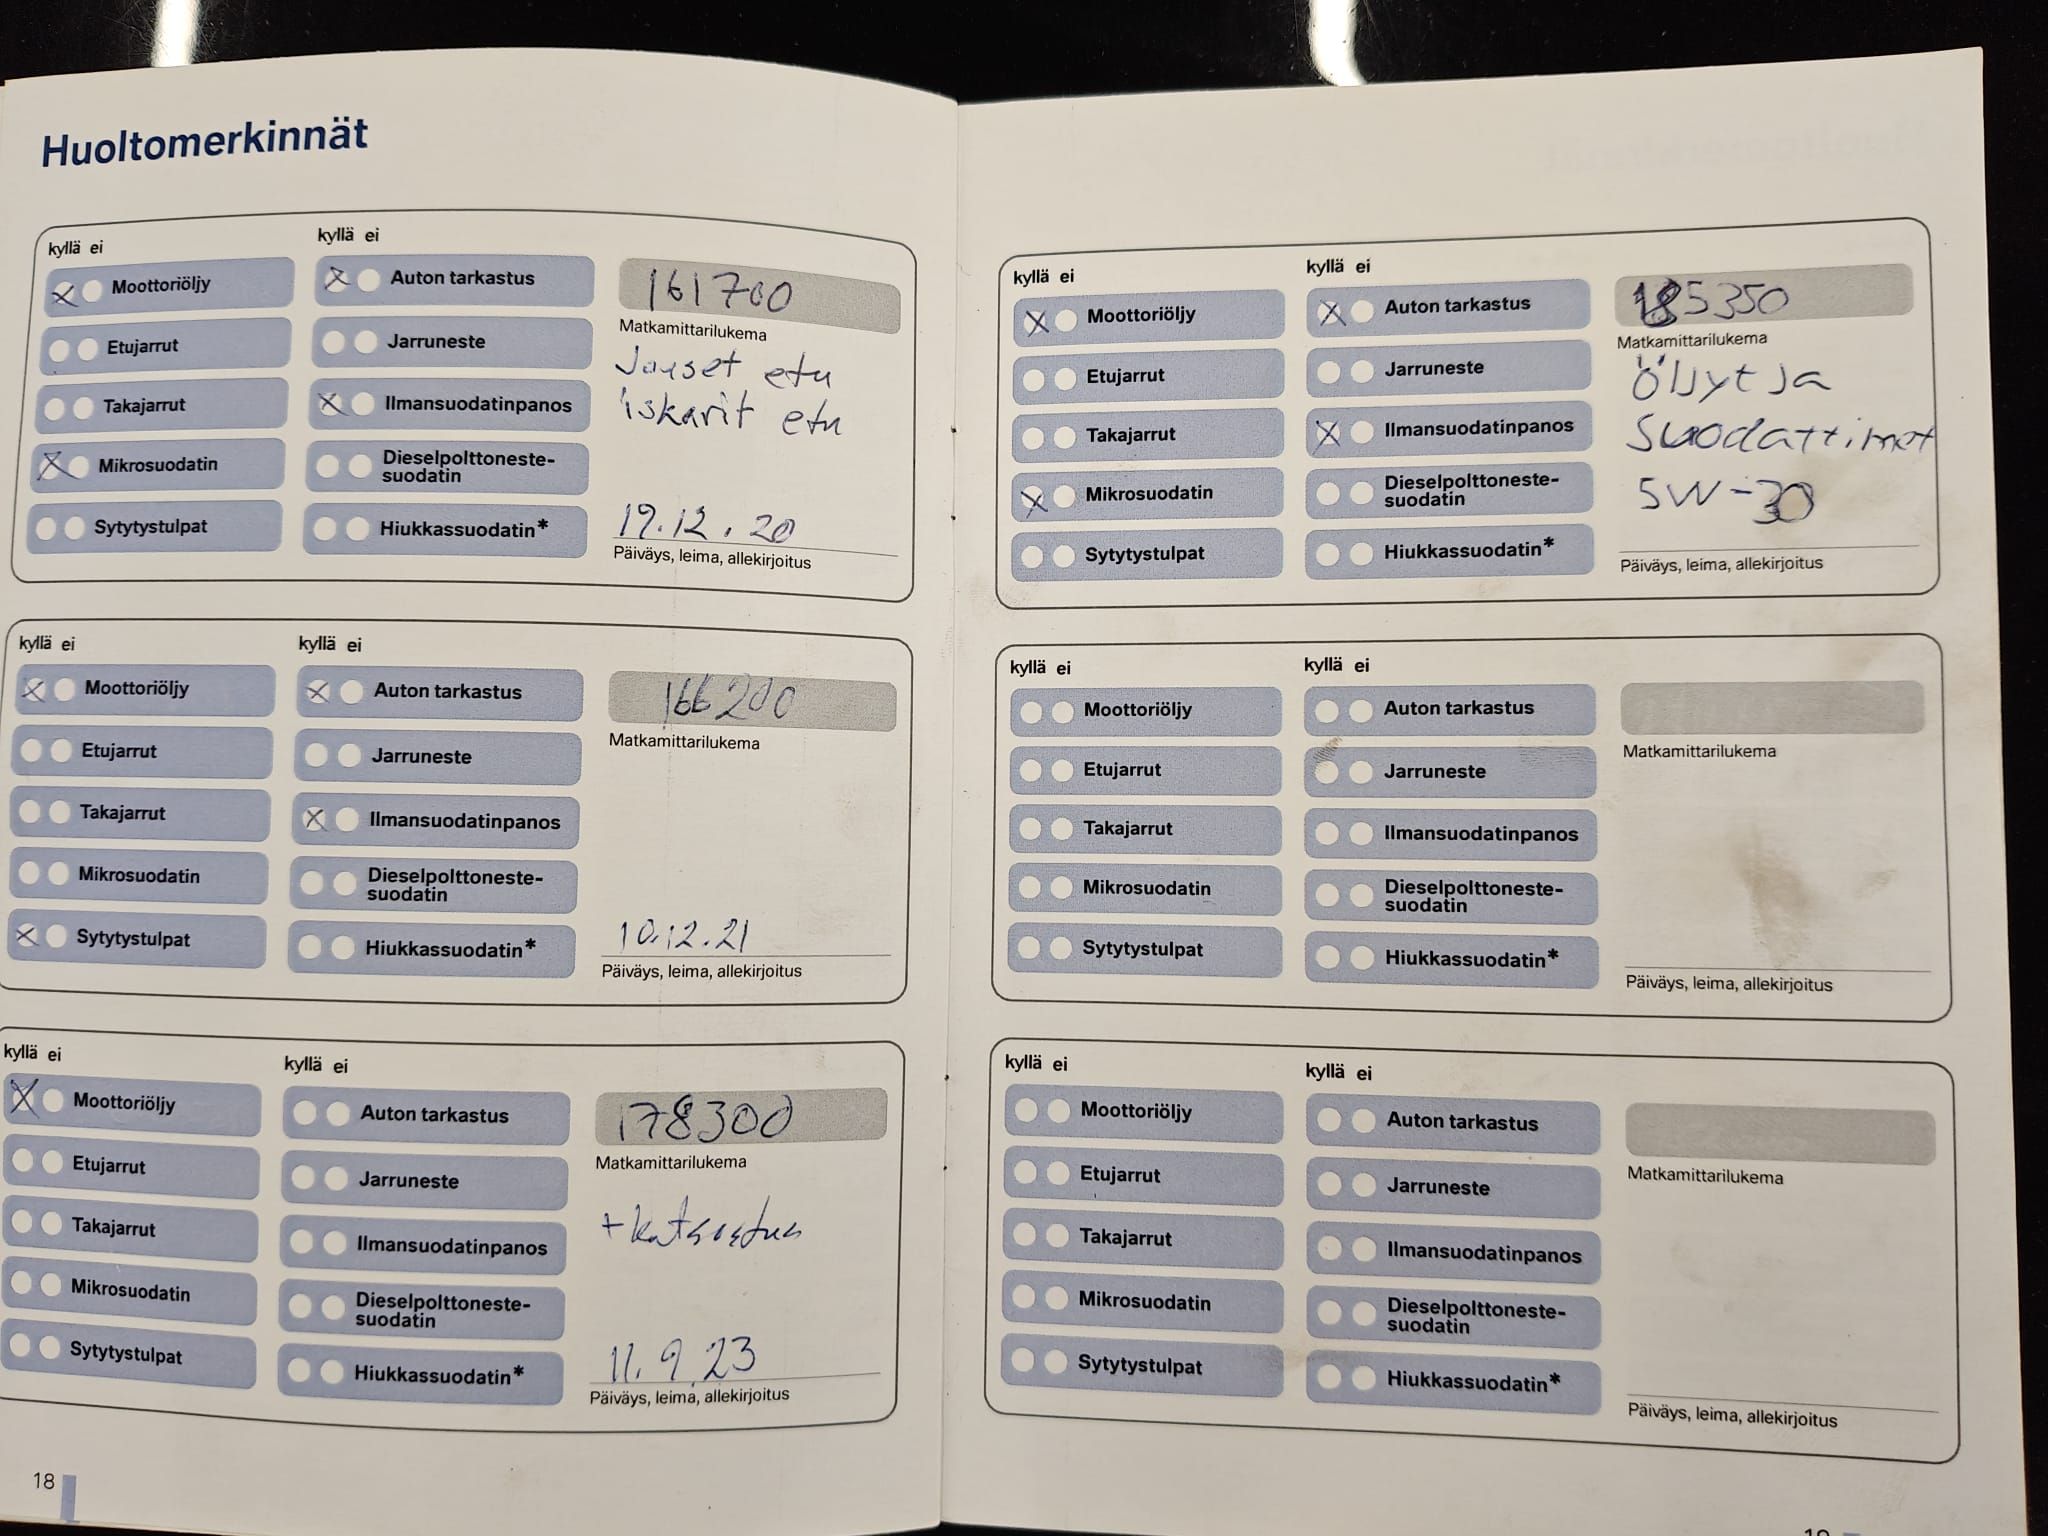 Huoltomerkinnät
kyllä ei
kyllä ei
Moottoriöljy
Auton tarkastus
161700
Etujarrut
Jarruneste
Matkamittarilukema
Takajarrut
Ilmansuodatinpanos
Jouset etu
iskarit etu
Mikrosuodatin
Dieselpolttoneste-
suodatin
Sytytystulpat
Hiukkassuodatin*
19.12.20
Päiväys, leima, allekirjoitus
kyllä ei
kyllä ei
Moottoriöljy
Auton tarkastus
166200
Etujarrut
Jarruneste
Matkamittarilukema
Takajarrut
Ilmansuodatinpanos
Mikrosuodatin
Dieselpolttoneste-
suodatin
Sytytystulpat
Hiukkassuodatin*
10.12.21
Päiväys, leima, allekirjoitus
kyllä ei
kyllä ei
Moottoriöljy
Auton tarkastus
178300
Etujarrut
Jarruneste
Matkamittarilukema
Takajarrut
Ilmansuodatinpanos
+ katsastus
Mikrosuodatin
Dieselpolttoneste-
suodatin
Sytytystulpat
Hiukkassuodatin*
11.9.23
Päiväys, leima, allekirjoitus
18
kyllä ei
kyllä ei
Moottoriöljy
Auton tarkastus
185350
Etujarrut
Jarruneste
Matkamittarilukema
Takajarrut
Ilmansuodatinpanos
Öljyt ja
suodattimet
5W-30
Mikrosuodatin
Dieselpolttoneste-
suodatin
Sytytystulpat
Hiukkassuodatin*
Päiväys, leima, allekirjoitus
kyllä ei
kyllä ei
Moottoriöljy
Auton tarkastus
Etujarrut
Jarruneste
Matkamittarilukema
Takajarrut
Ilmansuodatinpanos
Mikrosuodatin
Dieselpolttoneste-
suodatin
Sytytystulpat
Hiukkassuodatin*
Päiväys, leima, allekirjoitus
kyllä ei
kyllä ei
Moottoriöljy
Auton tarkastus
Etujarrut
Jarruneste
Matkamittarilukema
Takajarrut
Ilmansuodatinpanos
Mikrosuodatin
Dieselpolttoneste-
suodatin
Sytytystulpat
Hiukkassuodatin*
Päiväys, leima, allekirjoitus